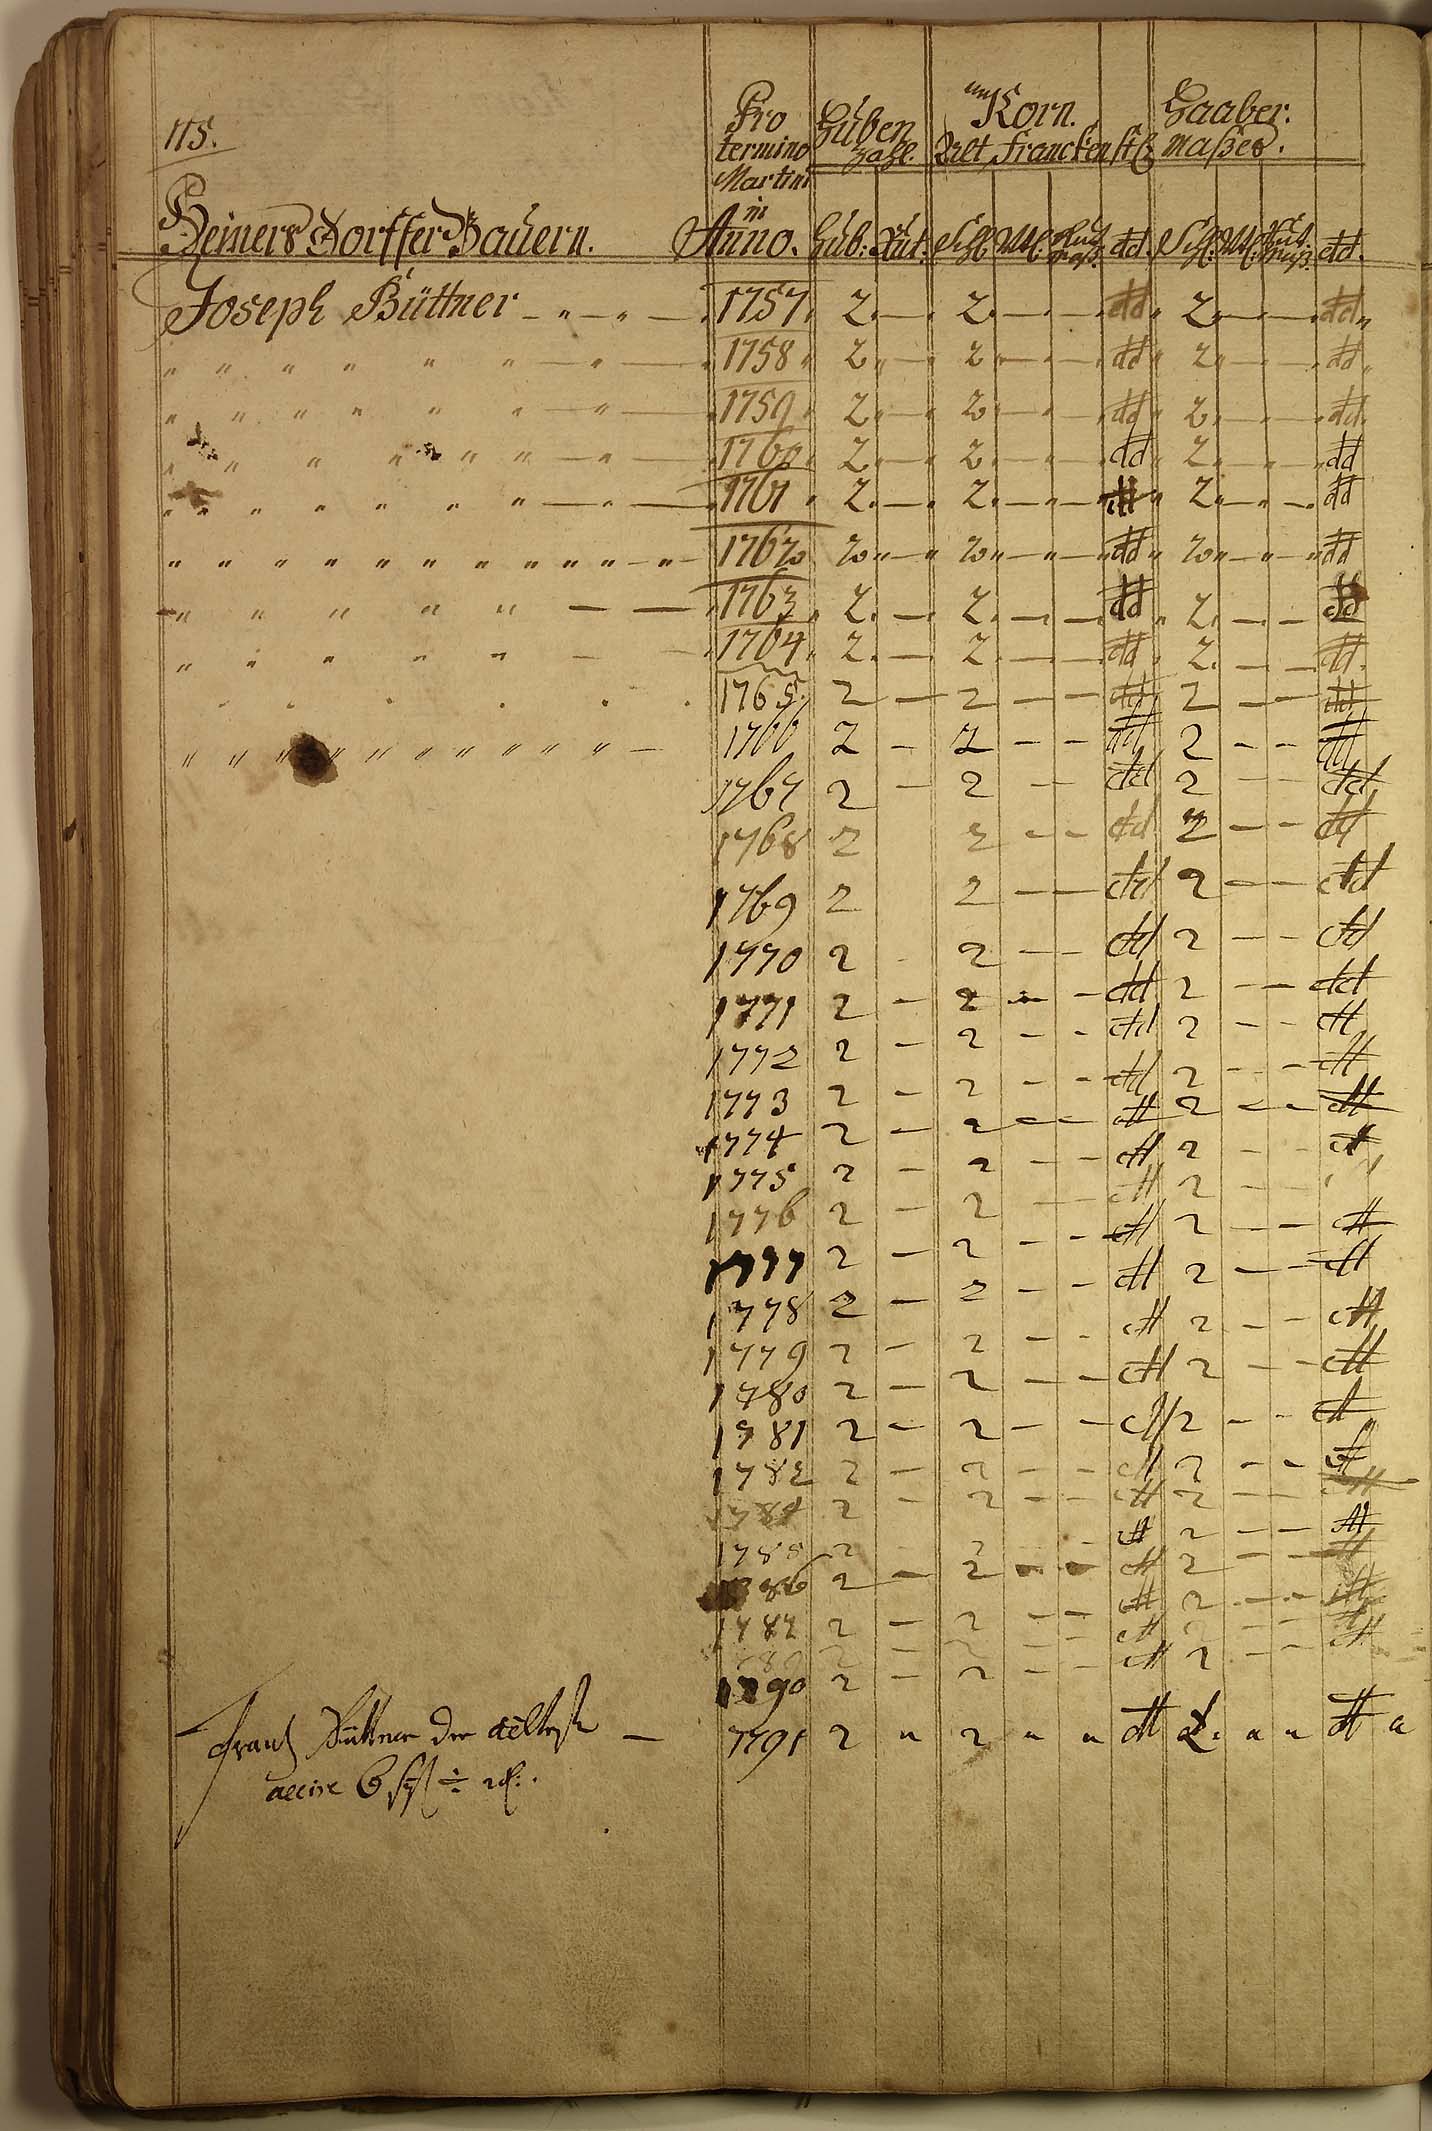 115.
Pro termino Martini in Anno.
Huben Zahl.
Korn. Haaber:
Alt Franckenst. Maßes.
Heinersdorffer Bauern. Anno. Hub: Rut: Schl: Mtl: dd. Schl: Mtl: dd.
Joseph Büttner - „ - „ - 1757 2. — 2. — „ — dd „ 2. — „ — dd „
„ „ „ „ „ „ — „ — 1758 2 „ — 2 „ — „ — dd 2 „ — „ — dd
„ „ „ „ „ „ — „ — 1759 2. — 2. — „ — dd 2. — „ — dd.
„ „ „ „ „ „ „ — „ — 1760 2. — 2. — „ — dd 2. „ „ dd
„ „ „ „ „ „ „ — „ — 1761 2. — 2. — „ — dd 2. — „ — dd
„ „ „ „ „ „ „ „ „ „ „ „ — „ — 1762 2 „ — „ 2 „ — „ — dd 2 „ — „ — „ dd
„ „ „ „ „ — — 1763 2. — 2. — — dd 2. — — dd
„ „ „ „ „ — — 1764 2. — 2. — — dd 2. — — dd.
1765. 2 — 2 — — dd 2 — — dd
„ „ „ „ „ „ „ „ „ „ „ — 1766 2 — 2 — — dd 2 — — dd
1767 2 — 2 — dd 2 — — dd
1768 2 2 — — dd 2 — — dd
1769 2 2 — — dd 2 — — dd
1770 2 2 — — dd 2 — — dd
1771 2 — 2 — — dd 2 — — dd
1772 2 — 2 — — dd 2 — — dd
1773 2 — 2 — — dd 2 — — dd
1774 2 — 2 — — dd 2 — — dd
1775 2 — 2 — — dd 2 — — dd
1776 2 — 2 — dd 2 —
1777 2 — 2 — — dd 2 — — dd
1778 2 — 2 — — dd 2 — — dd
1779 2 — 2 — — dd 2 — — dd
1780 2 — 2 — — dd 2 — — dd
1781 2 — 2 — — dd 2 — — dd
1782 2 — 2 — — dd 2 — — dd
1784 2 — 2 — — dd 2 — — dd
1785 2 — 2 dd 2 — — dd
1786 2 — 2 — — dd 2 — — dd
1787 2 — 2 — — dd 2 — — dd
1790 2 — 2 — — dd 2 — — dd
Frantz Büttner der aelteste — 1791 2 „ 2 „ „ dd 2. „ „ dd
accise 6